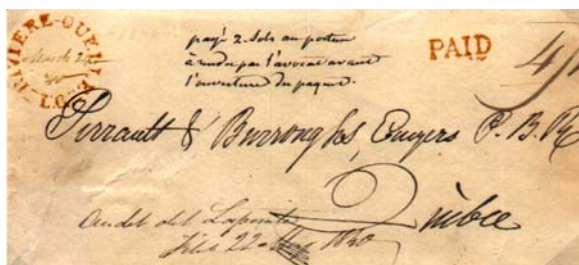 RIVIÈRE-OUELLE
March 24
40
L.C.
payé 2 Sols au porteur
à rendu par l'avocat avant
l'ouverture du paquet.
PAID
Perrault & Burroughs, Esquires P. B. R
Québec
Audet dit Lapointe
Filed 22 1840